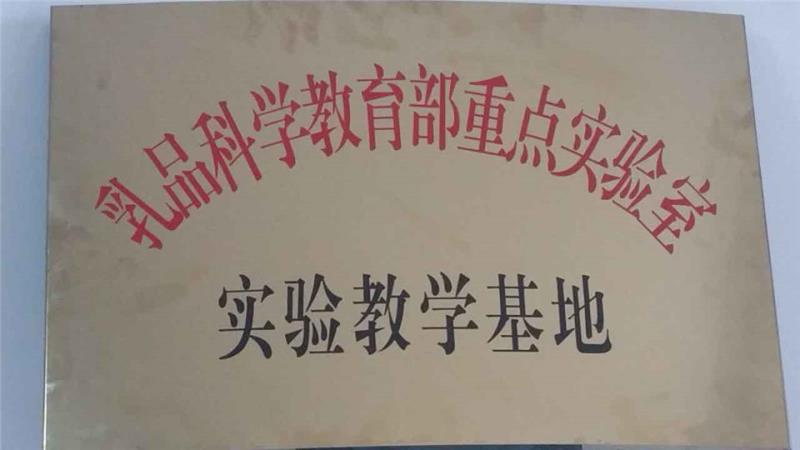 乳品科学教育部重点实验室
实验教学基地